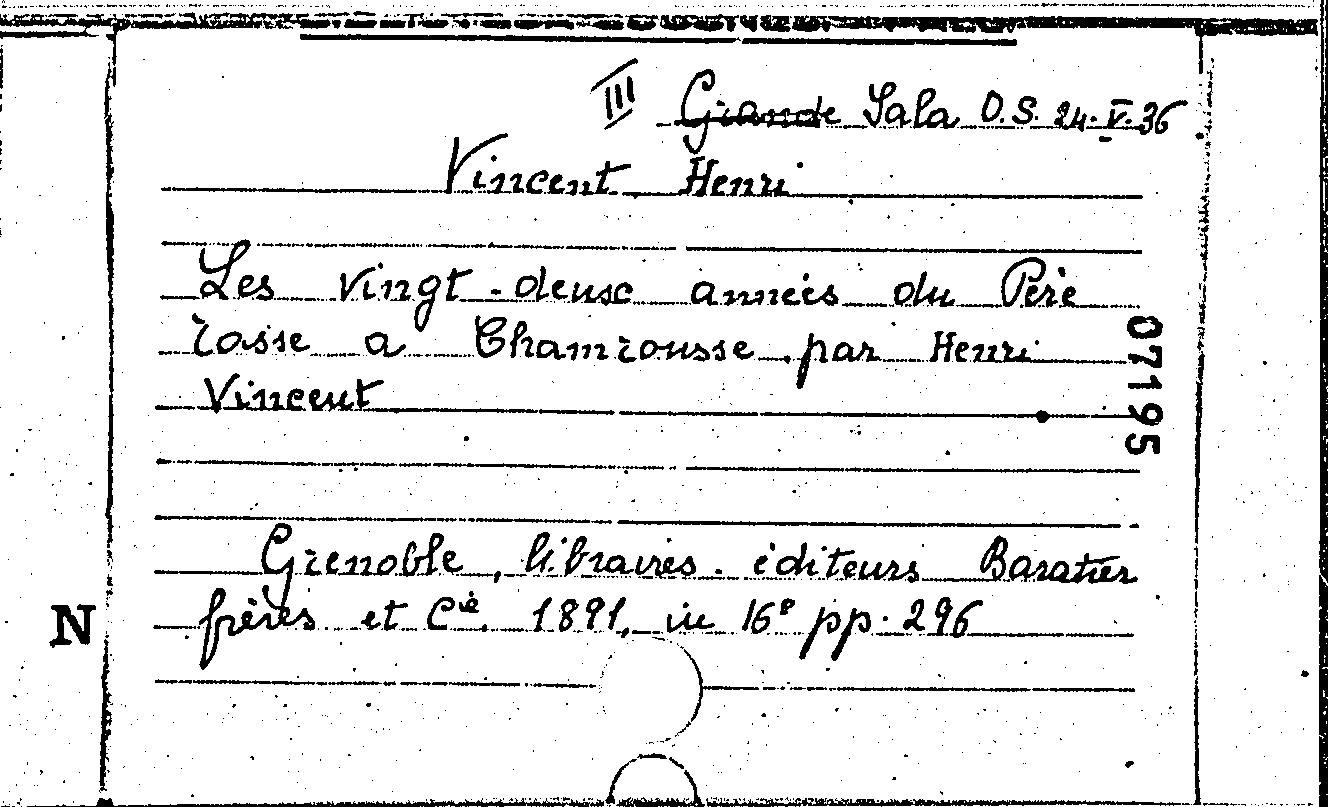 III Grande Sala O.S. 24.V.36
Vincent Henri
Les vingt-deux années du Père
rasse a Chamrousse par Henri
Vincent
07195
Grenoble, libraires-éditeurs Baratier
frères et Cie. 1891, in 16° pp. 296
N